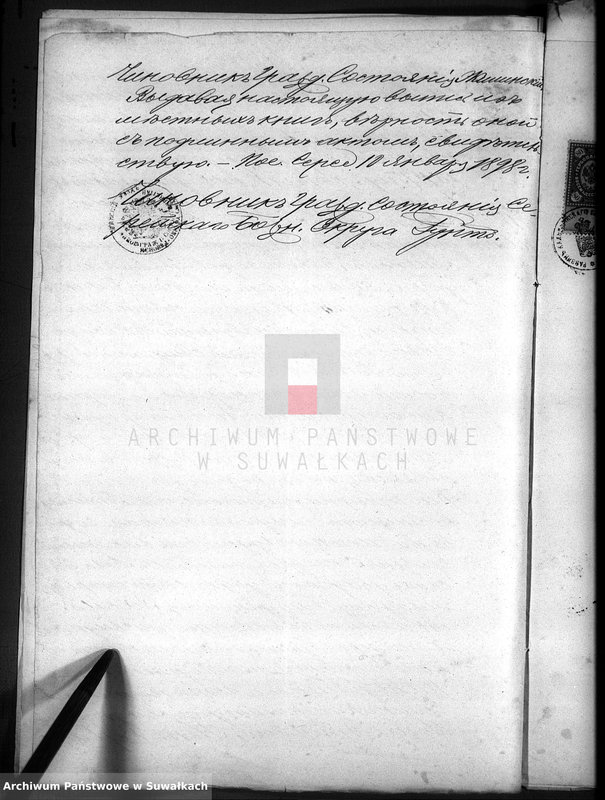 Чиновникъ Гражд. Состоянія
Выдавая настоящую выпись изъ
мѣстныхъ книгъ, вѣрность оной
съ подлиннымъ актомъ, свидѣтель
ствую. — Пос. Серее 10 Января 1898 г.
Чиновникъ Гражд. Состоянія Се-
рейскаго Округа
ARCHIWUM PAŃSTWOWE
W SUWAŁKACH
Archiwum Państwowe w Suwałkach